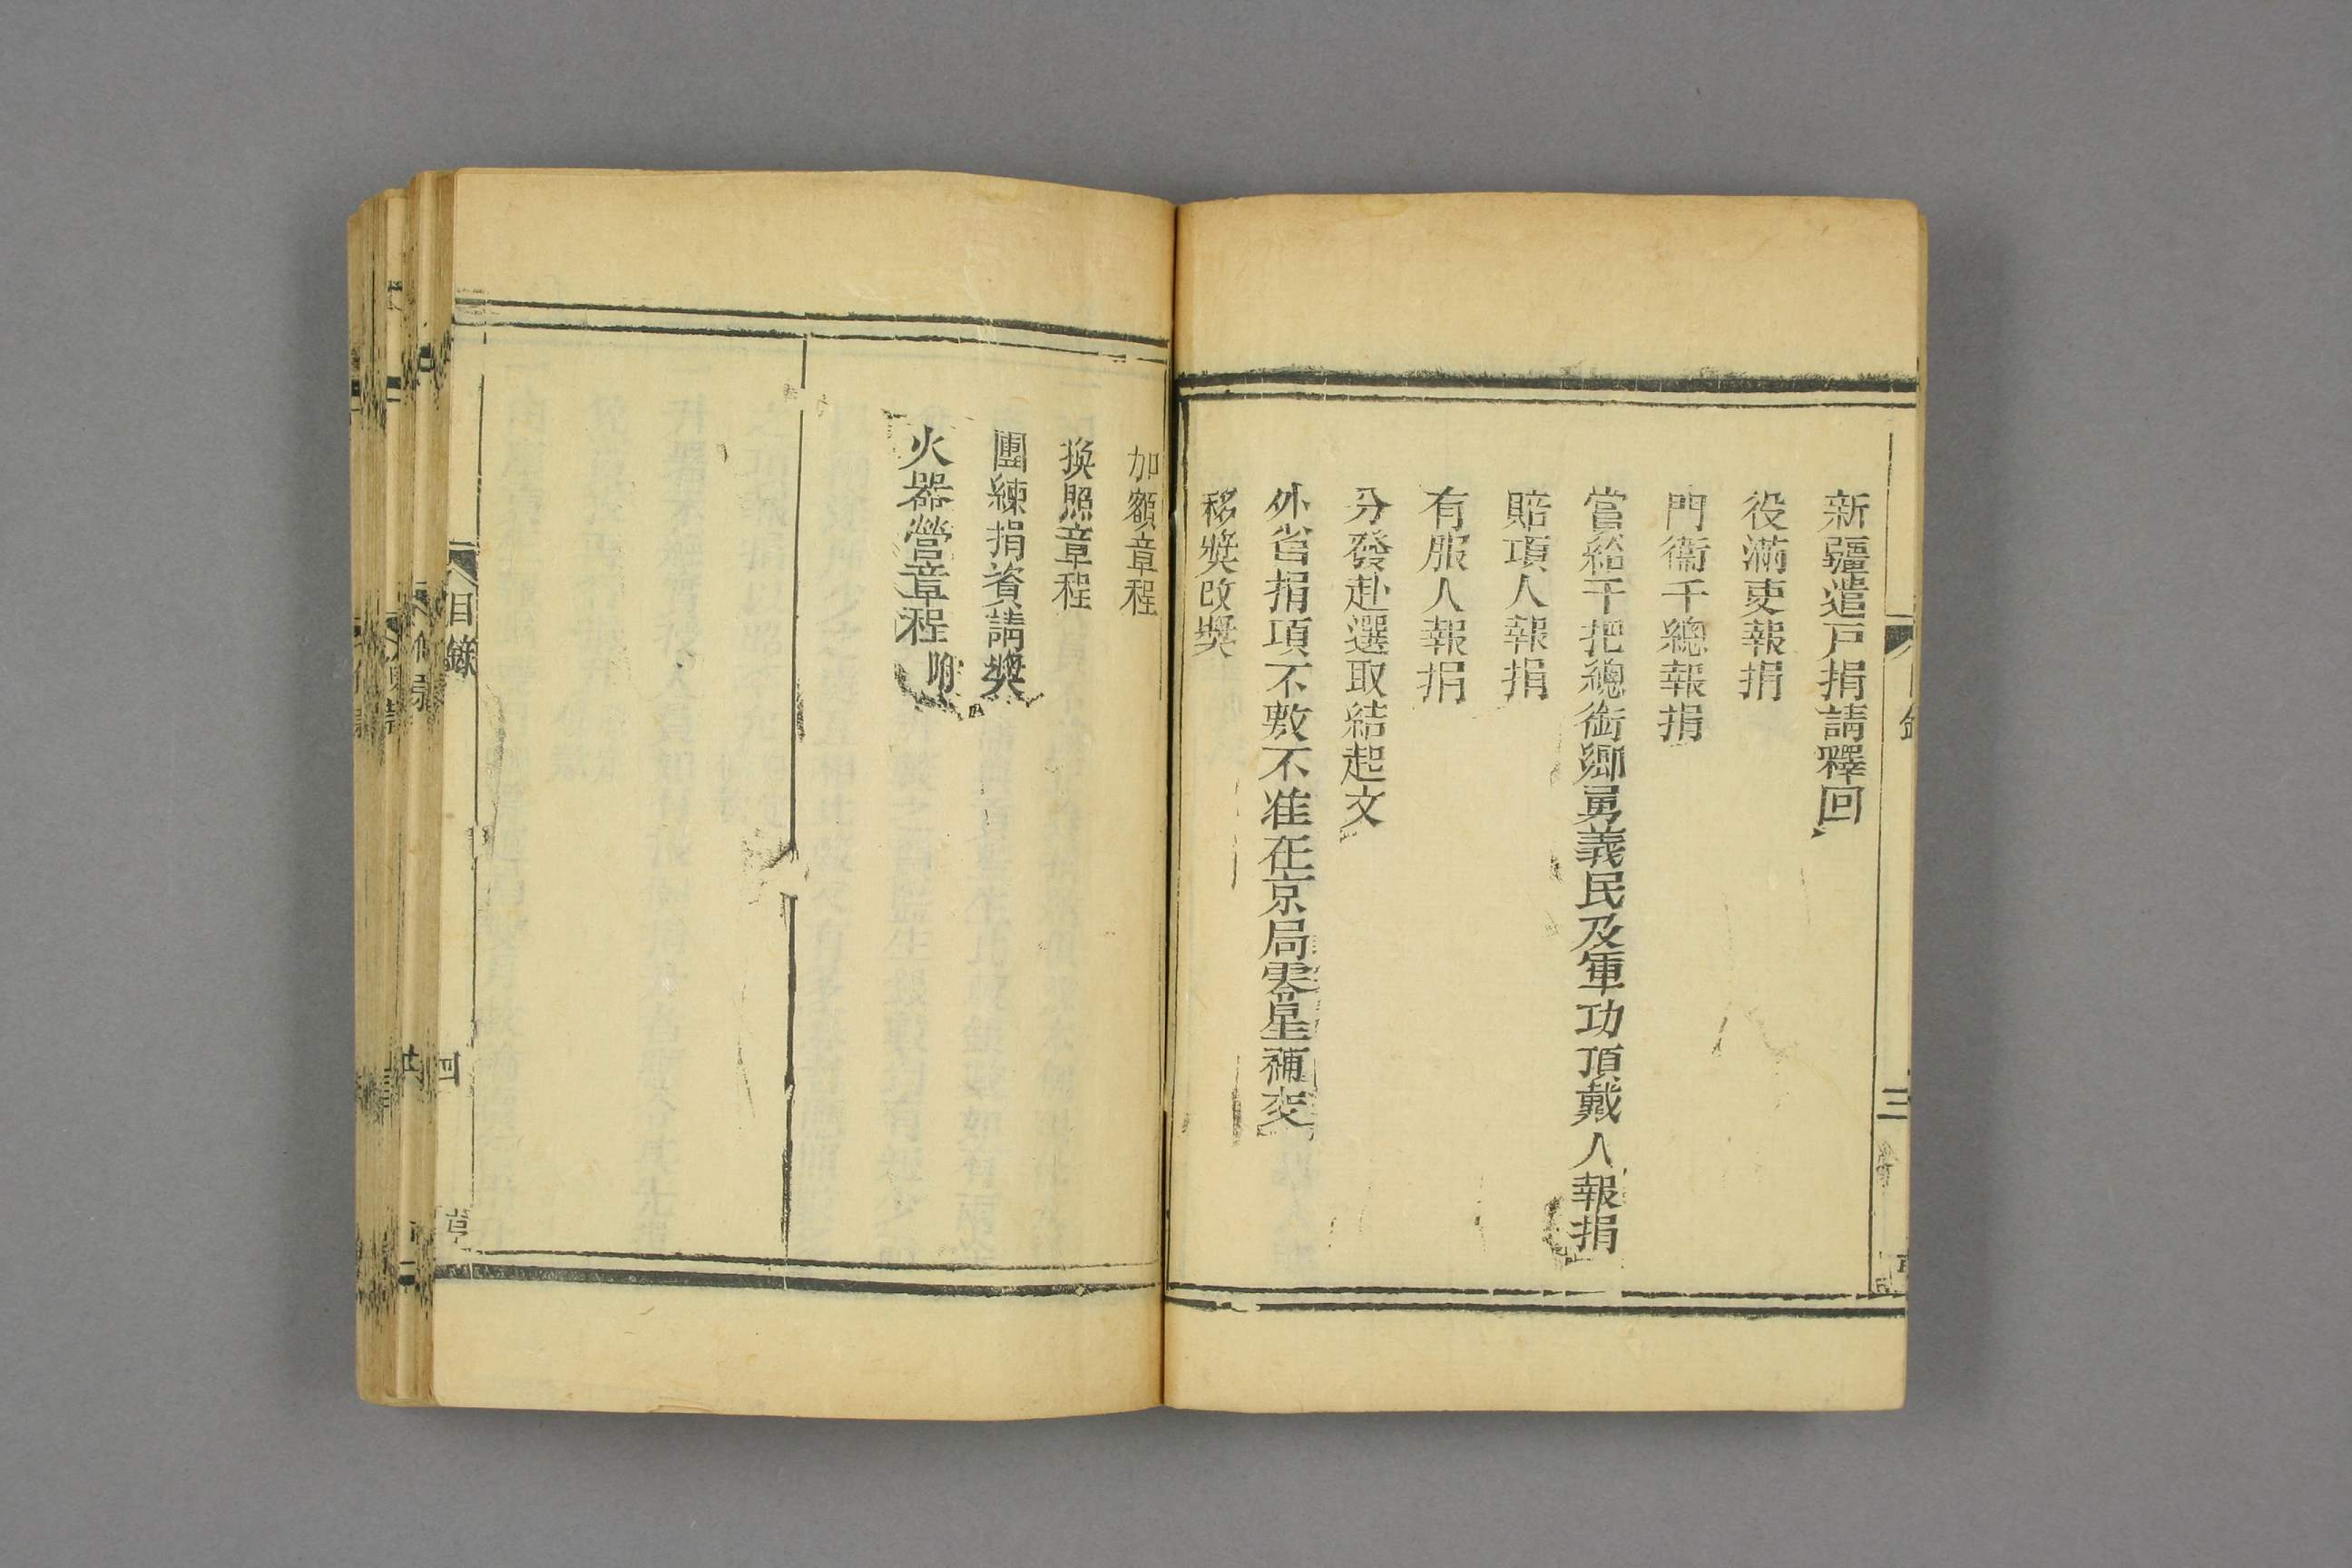 新疆遣戸捐請釋回
役滿吏報捐
門衞千總報捐
嘗給千把總銜鄉勇義民及軍功頂戴人報捐
賠項人報捐
有服人報捐
分發赴選取結起文
外省捐項不敷不准在京局零星補交
移獎改獎
三
加額章程
換照章程
團練捐資請獎
火器營章程附
目錄
四